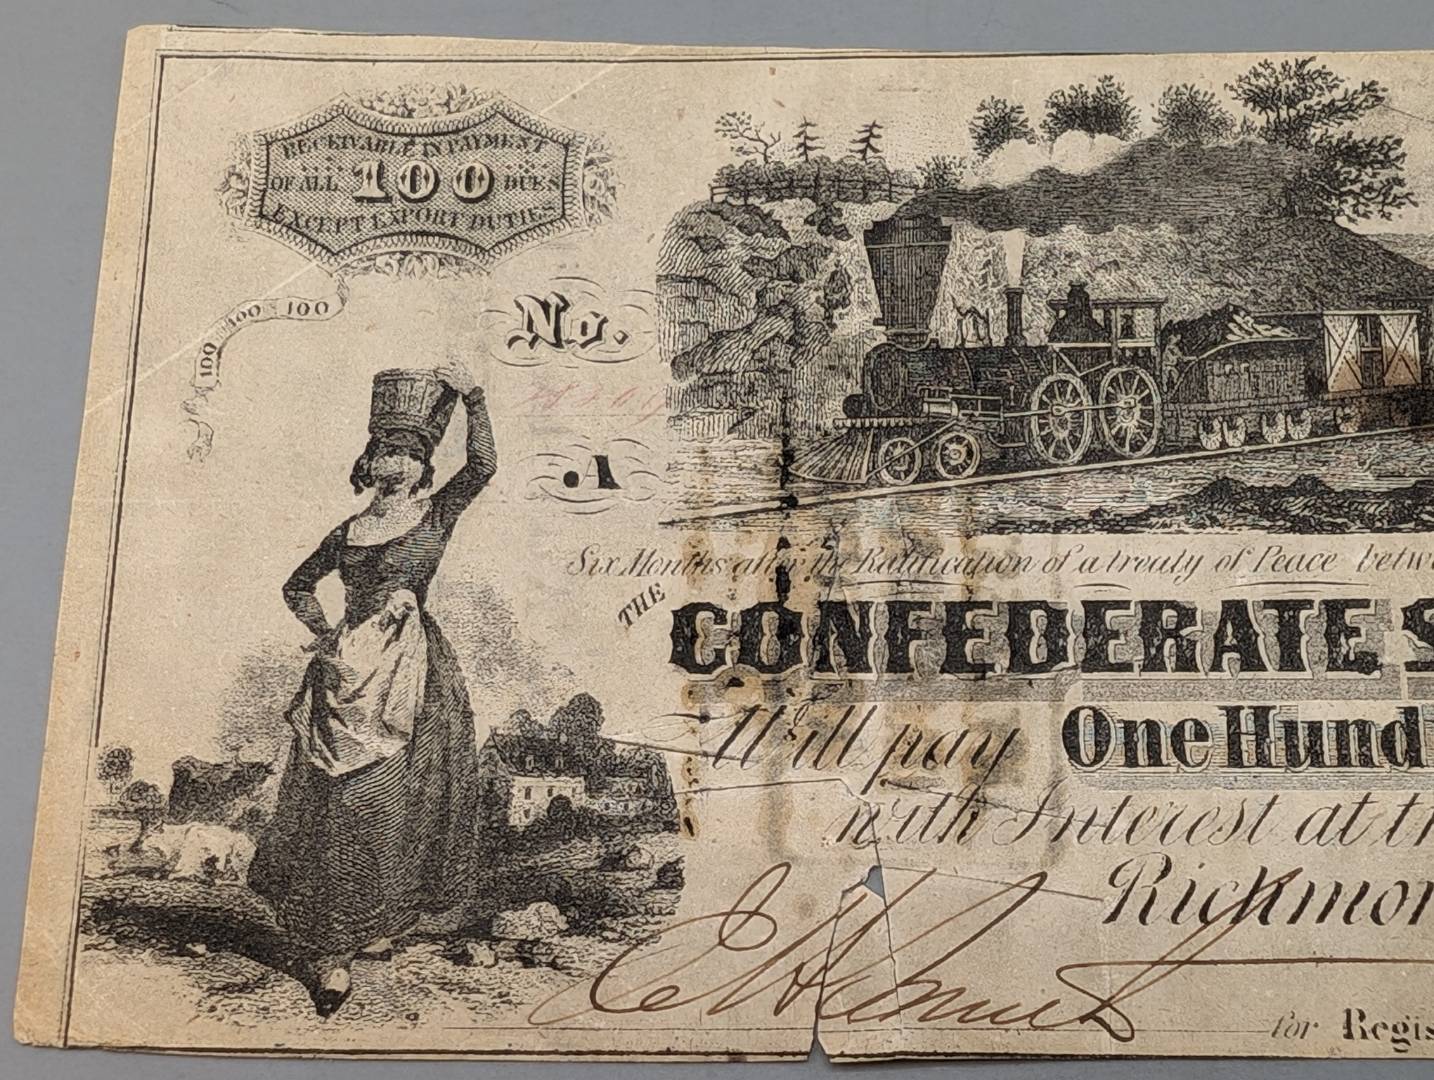 RECEIVABLE IN PAYMENT
OF ALL 100 DUES
EXCEPT EXPORT DUTIES
100 100 100
No.
A
Six Months after the Ratification of a treaty of Peace betw
THE
CONFEDERATE S
Will pay One Hund
with Interest at th
Richmon
for Regis